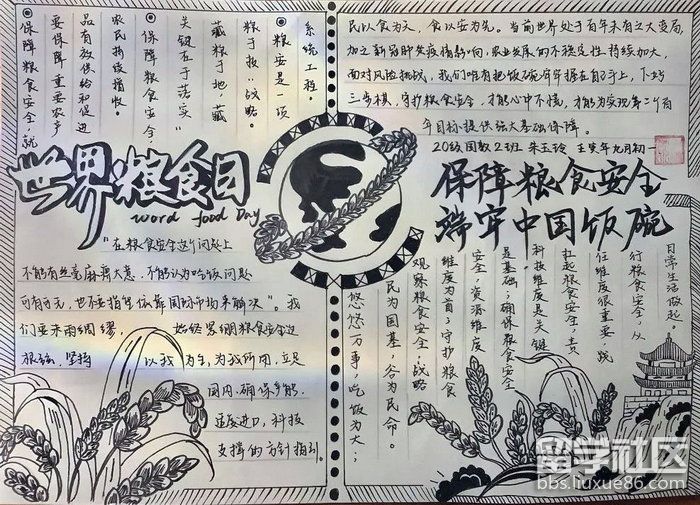 系统工程。
粮安是一项
粮于技”战略。
藏粮于地，藏
关键在于落实“
保障粮食安全，
农民持续增收。
品有效供给和促进
要保障重要农产
保障粮食安全，就
世界粮食日
word food Day
“在粮食安全这个问题上
不能有丝毫麻痹大意，不能认为吃饭问题
可有可无，也不要指望依靠国际市场来解决”。我
们要未雨绸缪，始终紧绷粮食安全这
根弦，坚持以我为主，为我所用，立足
国内、确保产能、
适度进口、科技
支撑的方针指引。
民以食为天，食以安为先。当前世界处于百年未有之大变局，
加之新冠肺炎疫情影响，农业发展的不稳定性持续加大，
面对风险挑战，我们唯有把饭碗牢牢握在自己手上，下好
三步棋，守护粮食安全，才能心中不慌，才能为实现第二个百
年目标提供强大基础保障。
20级国教2班 朱玉玲 壬寅年九月初一
保障粮食安全
端牢中国饭碗
日常生活做起。
行粮食安全，从
任维度很重要，践
扛起粮食安全，责
科技维度是关键
是基础；确保粮食安全
安全，资源维度
维度为首；守护粮食
观察粮食安全，战略
民为国基，谷为民命。
悠悠万事，吃饭为大；
留学社区
bbs.liuxue86.com